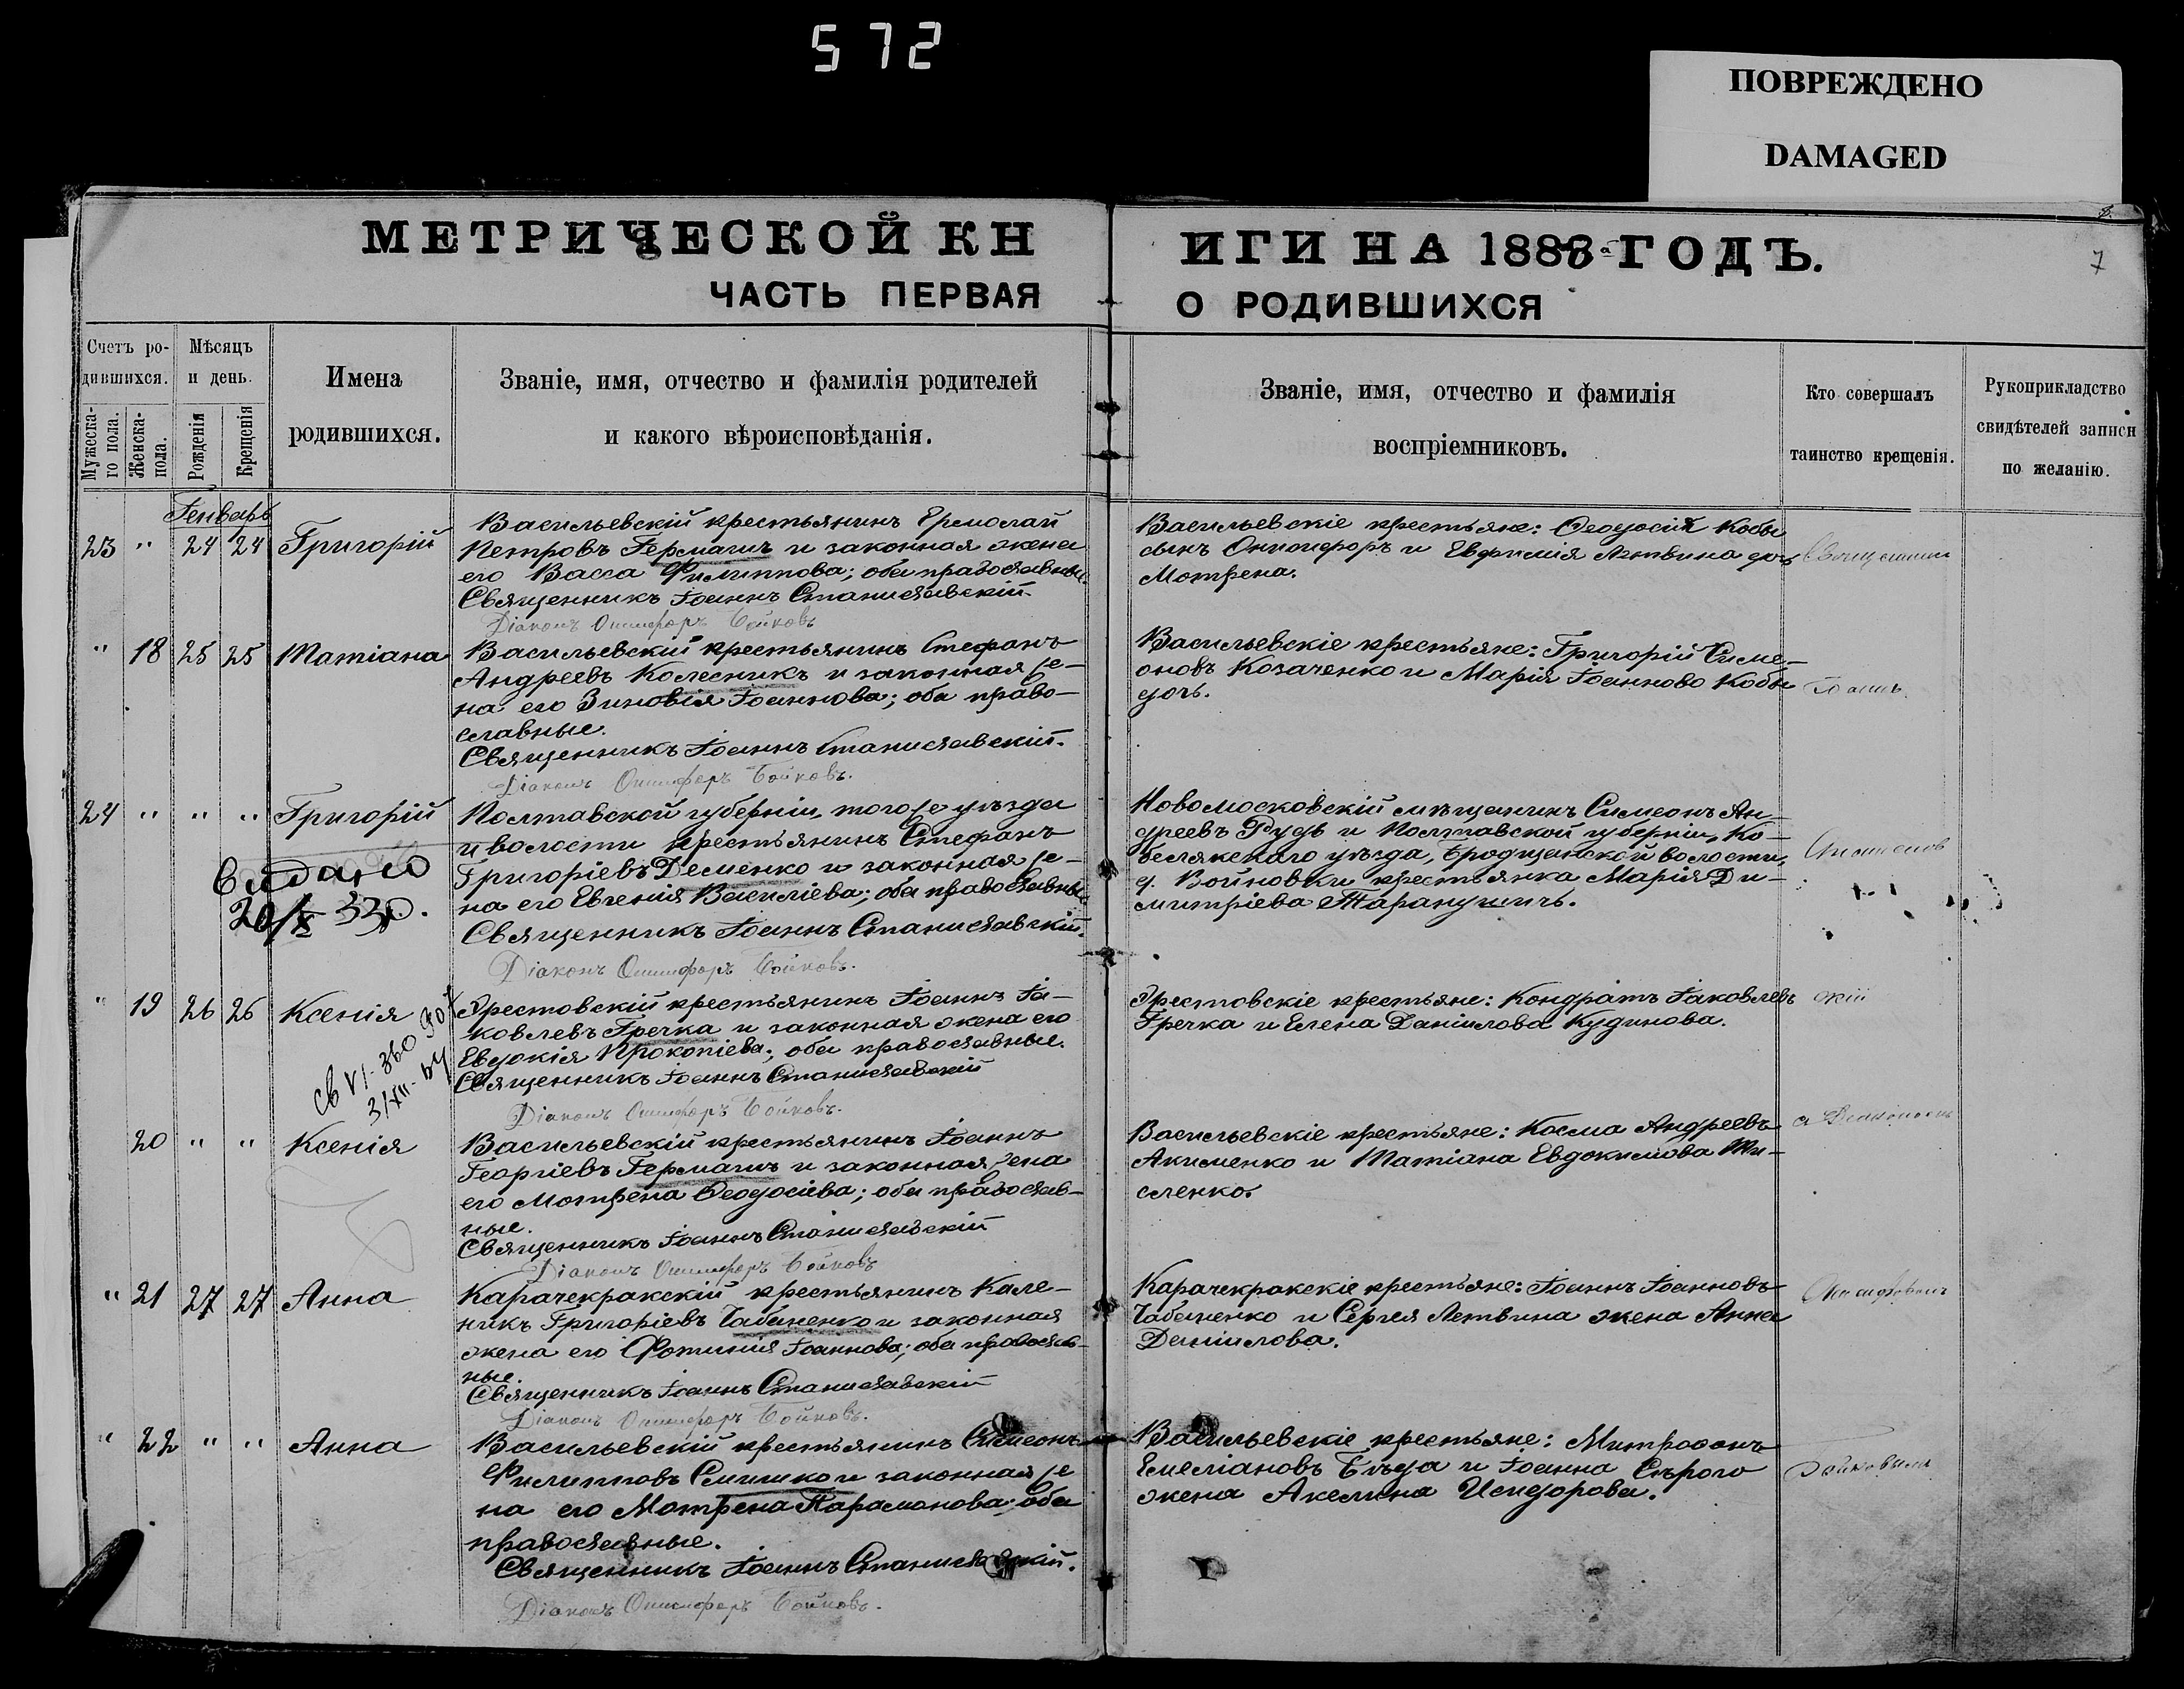 572
ПОВРЕЖДЕНО
DAMAGED
МЕТРИЧЕСКОЙ КН
ИГИ НА 1886 ГОДЪ.
7
ЧАСТЬ ПЕРВАЯ
О РОДИВШИХСЯ
Счетъ ро-
дившихся.
Мужеска-
го пола.
Женска-
пола.
Мѣсяцъ
и день.
Рожденія
Крещенія
Имена
родившихся.
Званіе, имя, отчество и фамилія родителей
и какого вѣроисповѣданія.
Званіе, имя, отчество и фамилія
воспріемниковъ.
Кто совершалъ
таинство крещенія.
Рукоприкладство
свидѣтелей записи
по желанію.
Генварь
23 " 24 24 Григорій
Васильевскій крестьянинъ Ермолай
Петровъ Германъ и законная жена
его Васса Филиппова; оба православные
Священникъ Іоаннъ Станиславскій.
Діаконъ Онисифоръ Бойковъ
Васильевскіе крестьяне: Ѳеодосій Кобы
сынъ Онисифоръ и Евфимія Литвина дочь
Мотрена.
Священник
" 18 25 25 Татіана
Васильевскій крестьянинъ Стефанъ
Андреевъ Колесникъ и законная же-
на его Зиновія Іоаннова; оба право-
славные.
Священникъ Іоаннъ Станиславскій.
Діаконъ Онисифоръ Бойковъ.
Васильевскіе крестьяне: Григорій Симе-
оновъ Козаченко и Марія Іоаннова Кобы
дочь.
Іоаннъ
24 " " " Григорій
Видано
20/X 33 р.
Полтавской губерніи, того же уѣзда
и волости крестьянинъ Стефанъ
Григоріевъ Деменко и законная же-
на его Евгенія Василіева; оба православные
Священникъ Іоаннъ Станиславскій.
Діаконъ Онисифоръ Бойковъ.
Новомосковскій мѣщанинъ Симеонъ Ан-
дреевъ Рудь и Полтавской губерніи, Ко-
белякскаго уѣзда, Бродщанской волости,
д. Войновки крестьянка Марія Ди-
митріева
Станислав
" 19 26 26 Ксенія
св VI-360
3/XII-
Хрестовскій крестьянинъ Іоаннъ Іа-
ковлевъ Гречка и законная жена его
Евдокія Прокопіева; оба православные.
Священникъ Іоаннъ Станиславскій
Діаконъ Онисифоръ Бойковъ.
Хрестовскіе крестьяне: Кондратъ Іаковлевъ
Гречка и Елена Даніилова Кудинова.
скій
20 " " Ксенія
Васильевскій крестьянинъ Іоаннъ
Георгіевъ Германъ и законная жена
его Мотрена Ѳеодосіева; оба православ-
ные.
Священникъ Іоаннъ Станиславскій
Діаконъ Онисифоръ Бойковъ
Васильевскіе крестьяне: Косма Андреевъ
Акименко и Татіана Евдокимова Ти-
сленко.
съ Діакономъ
" 21 27 27 Анна
Карачекракскій крестьянинъ Кале-
никъ Григоріевъ Чабаненко и законная
жена его Фотинія Іоаннова; оба православ-
ные.
Священникъ Іоаннъ Станиславскій
Діаконъ Онисифоръ Бойковъ.
Карачекракскіе крестьяне: Іоаннъ Іоанновъ
Чабаненко и Сергея Литвина жена Анна
Даніилова.
Онисифоромъ
" 22 " " Анна
Васильевскій крестьянинъ Симеонъ
Филипповъ и законная же
на его Мотрена Парамонова; оба
православные.
Священникъ Іоаннъ Станиславскій.
Діаконъ Онисифоръ Бойковъ.
Васильевскіе крестьяне: Митрофанъ
Емеліановъ Бѣда и Іоанна Сѣрого
жена Акелина Исидорова.
Бойковымъ